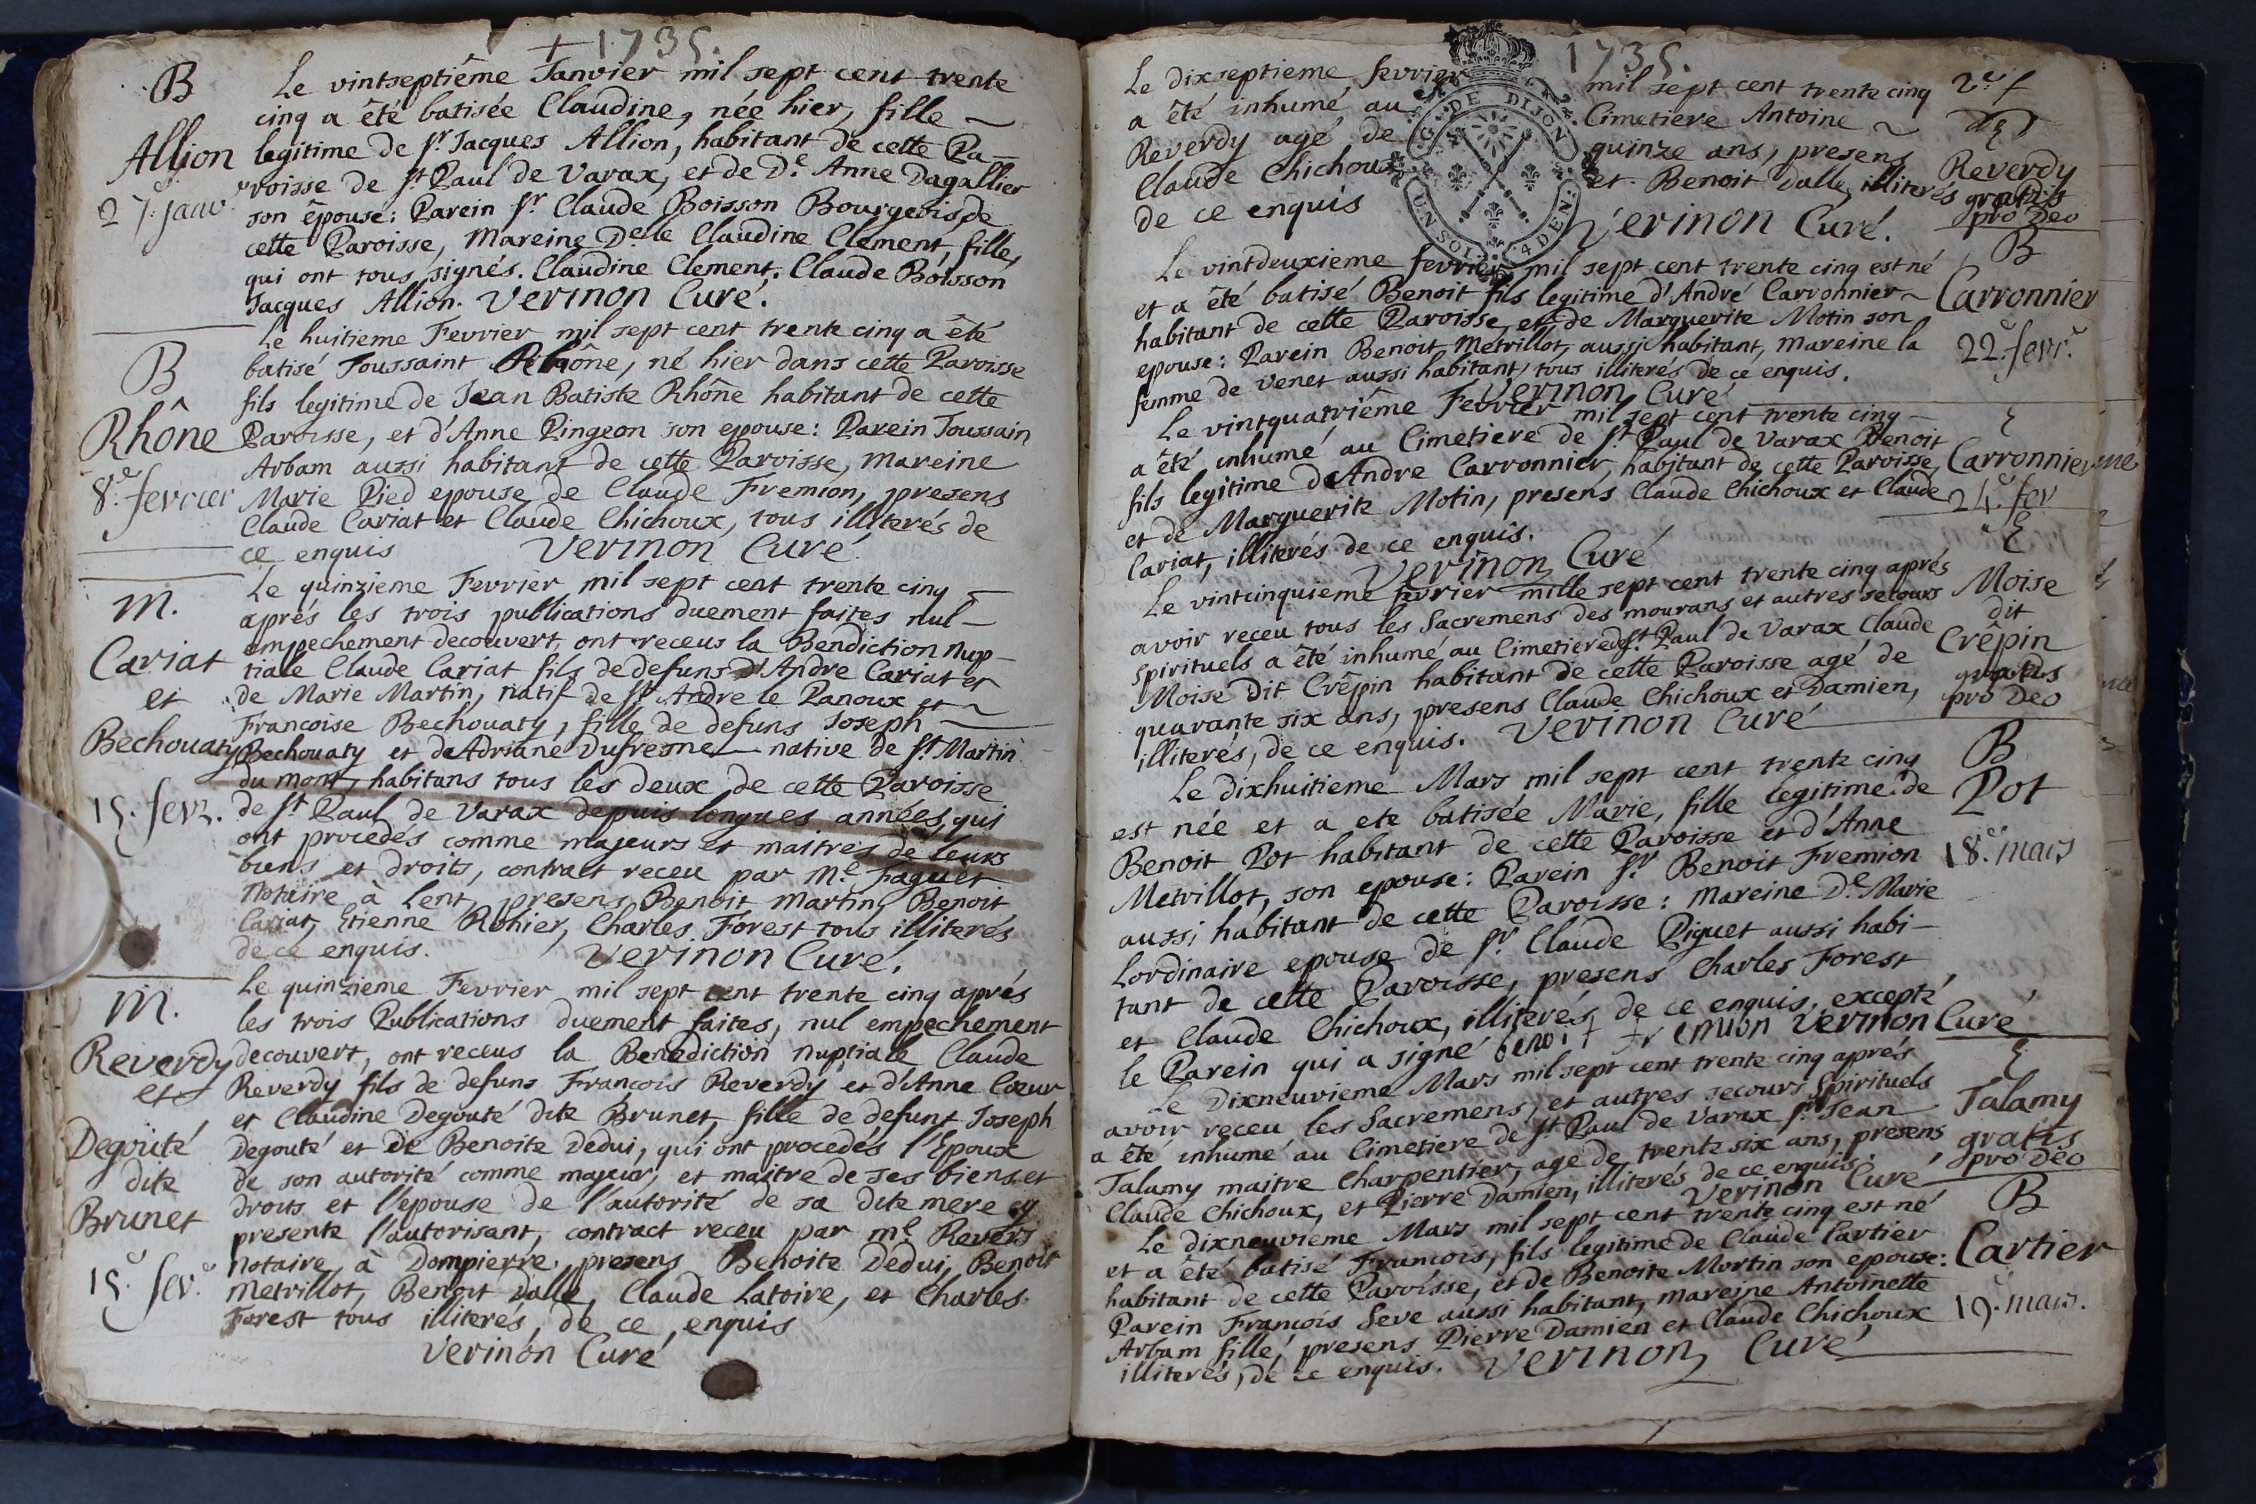 + 1735.
B
Allion
27.e janv.
Le vintseptiême Janvier mil sept cent trente
cinq a êté batisée Claudine, née hier, fille ~
legitime de Sr. Jacques Allion, habitant de cette Pa-
roisse de St Paul de Varax, et de De. Anne Dagallier
son êpouse: Parein Sr. Claude Boisson Bourgeois, de
cette Paroisse, Mareine Delle Claudine Clement, fille,
qui ont tous signés. Claudine Clement. Claude Boisson
Jacques Allion. Verinon Curé.
B
Rhône
8.e fevrier
Le huitieme Fevrier mil sept cent trente cinq a êté
batisé Toussaint Rhône, né hier dans cette Paroisse
fils legitime de Jean Batiste Rhône habitant de cette
Paroisse, et d'Anne Pingeon son epouse: Parein Toussain
Arbam aussi habitant de cette Paroisse, Mareine
Marie Pied epouse de Claude Fremion, presens
Claude Cariat et Claude Chichoux, tous illiterés de
ce enquis Verinon Curé.
M.
Cariat
et
Bechouaty
15. fevr.
Le quinzieme Fevrier mil sept cent trente cinq ~
aprés les trois publications duement faites nul -
empechement decouvert, ont receus la Benediction nup-
tiale Claude Cariat fils de defuns d'André Cariat et
de Marie Martin, natif de St. André le Panoux et ~
Francoise Bechouaty, fille de defuns Joseph
Bechouaty et de Adriane Dufresne native de St. Martin
du mont, habitans tous les deux de cette Paroisse
de St Paul de Varax depuis longues années, qui
ont procedés comme majeurs et maitres de leurs
biens et droits, contract receu par Me. Faguet
Notaire à Lent, presens Benoit Martin, Benoit
Cariat, Etienne Rohier, Charles Forest tous illiterés
de ce enquis. Verinon Curé.
M.
Reverdy
et
Degouté
dite
Brunet
15.e fev.r
Le quinzieme Fevrier mil sept cent trente cinq aprés
les trois Publications duement faites, nul empechement
decouvert, ont receus la Benediction nuptiale Claude
Reverdy fils de defuns François Reverdy et d'Anne Cœur
et Claudine Degouté dite Brunet, fille de defunt Joseph
Degouté et de Benoite Dedui, qui ont procedés l'Epoux
de son autorité comme majeur, et maitre de ses biens et
droits et l'epouse de l'autorité de sa dite mere cy
presente l'autorisant, contract receu par Me. Revers
Notaire à Dompierre, presens Benoite Dedui, Benoit
Metrillot, Benoit Dalle, Claude Latoire, et Charles
Forest tous illiterés, de ce enquis
Verinon Curé
1735.
G. DE DIJON
UN SOL 4 DEN.
Le dixseptieme fevrier mil sept cent trente cinq
a êté inhumé au Cimetiere Antoine ~
Reverdy agé de quinze ans, presens
Claude Chichoux et Benoit Dalle, illiterés
de ce enquis Verinon Curé.
Reverdy
gratis
pro Deo
Le vintdeuxieme fevrier mil sept cent trente cinq est né
et a êté batisé Benoit fils legitime d'André Carronnier ~
habitant de cette Paroisse, et de Marguerite Motin son
epouse: Parein Benoit Metrillot, aussi habitant, Mareine la
femme de Venet aussi habitant, tous illiteres de ce enquis.
Verinon Curé
B
Carronnier
22.e fevr.
Le vintquatriême Fevrier mil sept cent trente cinq -
a êté inhumé au Cimetiere de St. Paul de Varax Benoit
fils legitime d'Andre Carronnier, habitant de cette Paroisse
et de Marguerite Motin, presens Claude Chichoux et Claude
Cariat, illiterés de ce enquis.
Verinon Curé
Carronnier
24.e fev
Le vintcinquieme fevrier mille sept cent trente cinq aprés
avoir receu tous les Sacremens des mourans et autres secours
spirituels a êté inhumé au Cimetiere de St. Paul de Varax Claude
Moise Dit Crêpin habitant de cette Paroisse agé de
quarante six ans, presens Claude Chichoux et Damien,
illiterés, de ce enquis. Verinon Curé
Moise
dit
Crêpin
gratis
pro Deo
Le dixhuitieme Mars mil sept cent trente cinq
est née et a ete batisée Marie, fille legitime de
Benoit Pot habitant de cette Paroisse et d'Anne
Metrillot, son epouse: Parein Sr. Benoit Fremion
aussi habitant de cette Paroisse: Mareine De. Marie
Lordinaire epouse de Sr. Claude Piguet aussi habi-
tant de cette Paroisse, presens Charles Forest
et Claude Chichoux, illiterés de ce enquis, excepté
le Parein qui a signé benoit fremion Verinon Curé
B
Pot
18.e mars
Le Dixneuvieme Mars mil sept cent trente cinq aprés
avoir receu les Sacremens, et autres secours Spirituels
a êté inhumé au Cimetiere de St Paul de Varax Sr. Jean
Talamy maitre Charpentier, agé de trente six ans, presens
Claude Chichoux, et Pierre Damien, illiterés de ce enquis.
Verinon Curé
Talamy
gratis
pro Deo
Le dixneuvieme Mars mil sept cent trente cinq est né
et a êté batisé François, fils legitime de Claude Cartier
habitant de cette Paroisse, et de Benoite Mortin son epouse:
Parein François Seve aussi habitant, mareine Antoinette
Arbam fille, presens Pierre Damien et Claude Chichoux
illiterés, de ce enquis. Verinon Curé
B
Cartier
19.e mars.